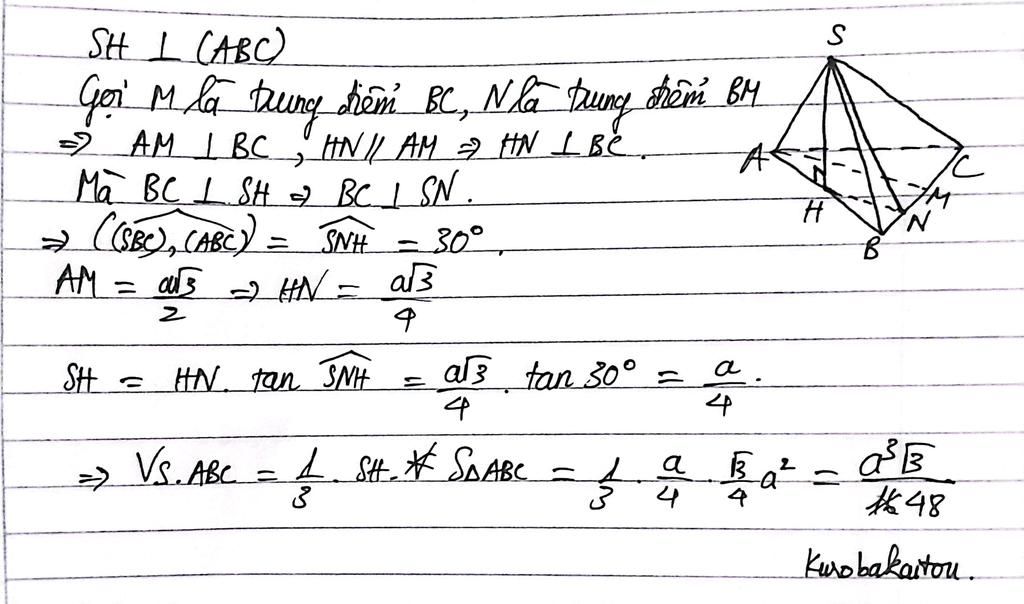 SH ⊥ (ABC)
Gọi M là trung điểm BC, N là trung điểm BM
⇒ AM ⊥ BC, HN // AM ⇒ HN ⊥ BC.
Mà BC ⊥ SH ⇒ BC ⊥ SN.
⇒ ((SBC), (ABC)) = SNH = 30°.
AM = a√3/2 ⇒ HN = a√3/4
SH = HN. tan SNH = a√3/4 . tan 30° = a/4.
⇒ VS.ABC = 1/3 . SH. SΔABC = 1/3 . a/4 . √3/4 a² = a³√3/48
Kurobakaitou.
S
A
C
M
H
N
B